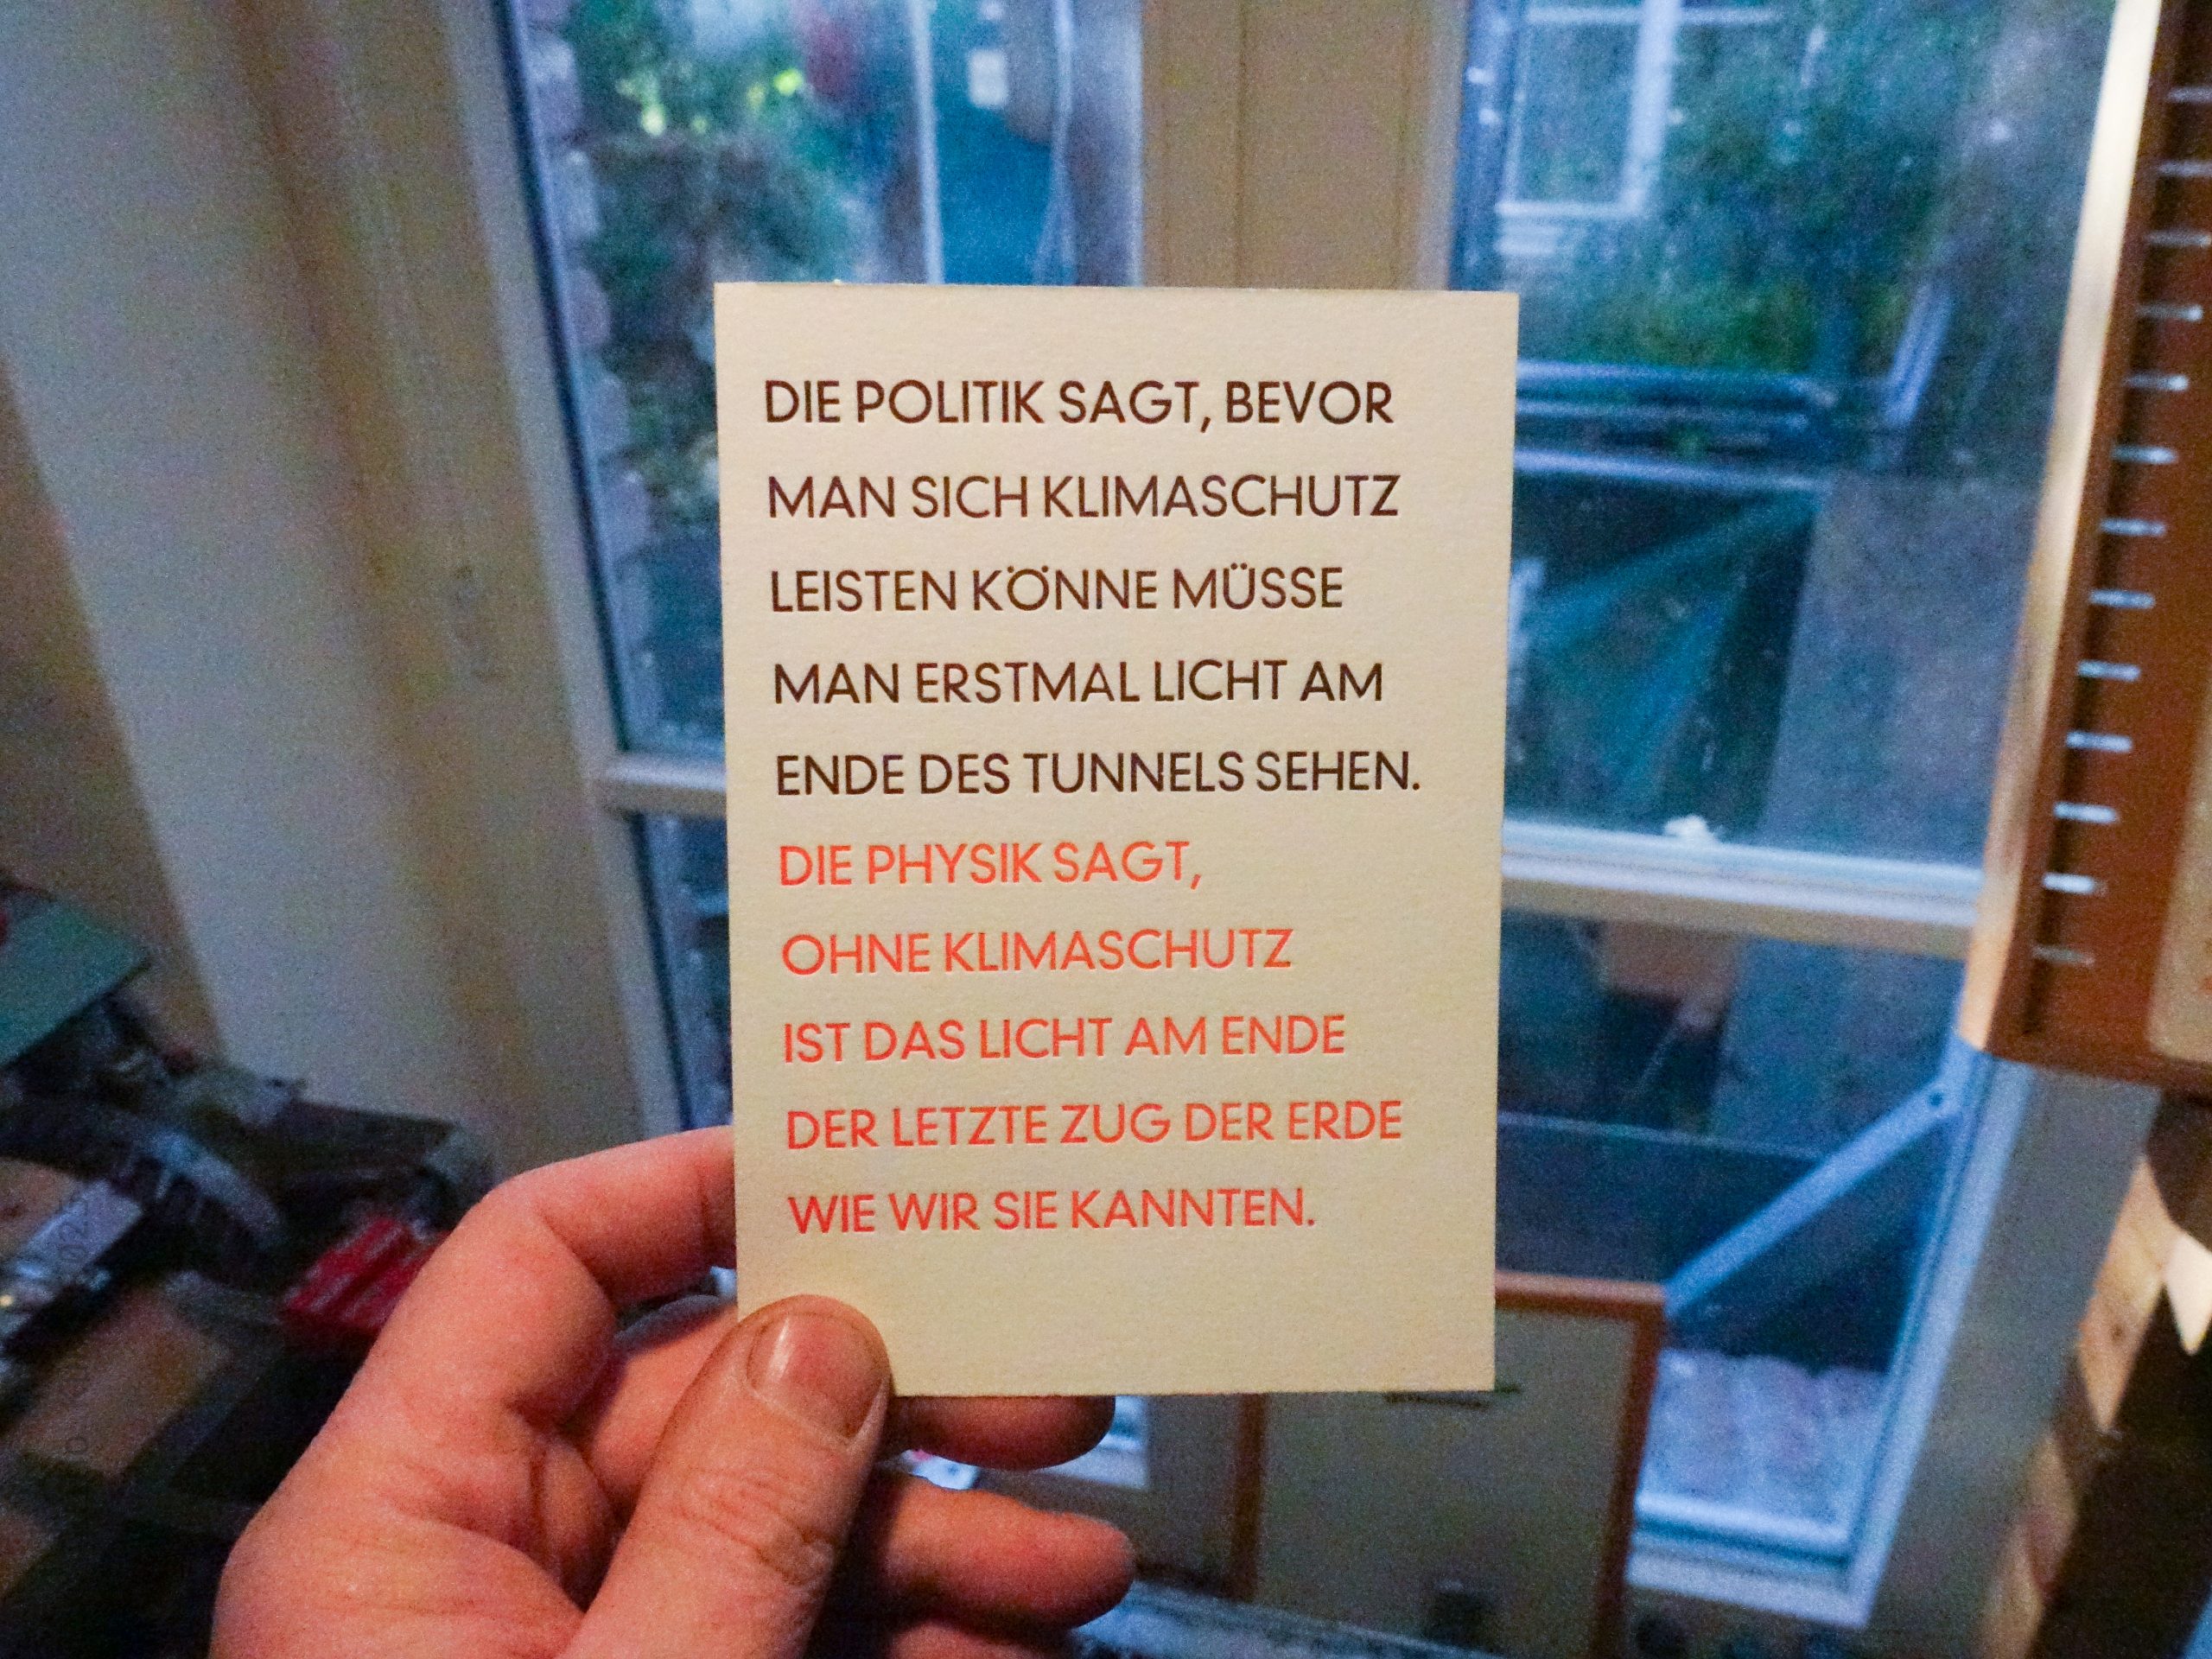 DIE POLITIK SAGT, BEVOR
MAN SICH KLIMASCHUTZ
LEISTEN KÖNNE MÜSSE
MAN ERSTMAL LICHT AM
ENDE DES TUNNELS SEHEN.
DIE PHYSIK SAGT,
OHNE KLIMASCHUTZ
IST DAS LICHT AM ENDE
DER LETZTE ZUG DER ERDE
WIE WIR SIE KANNTEN.